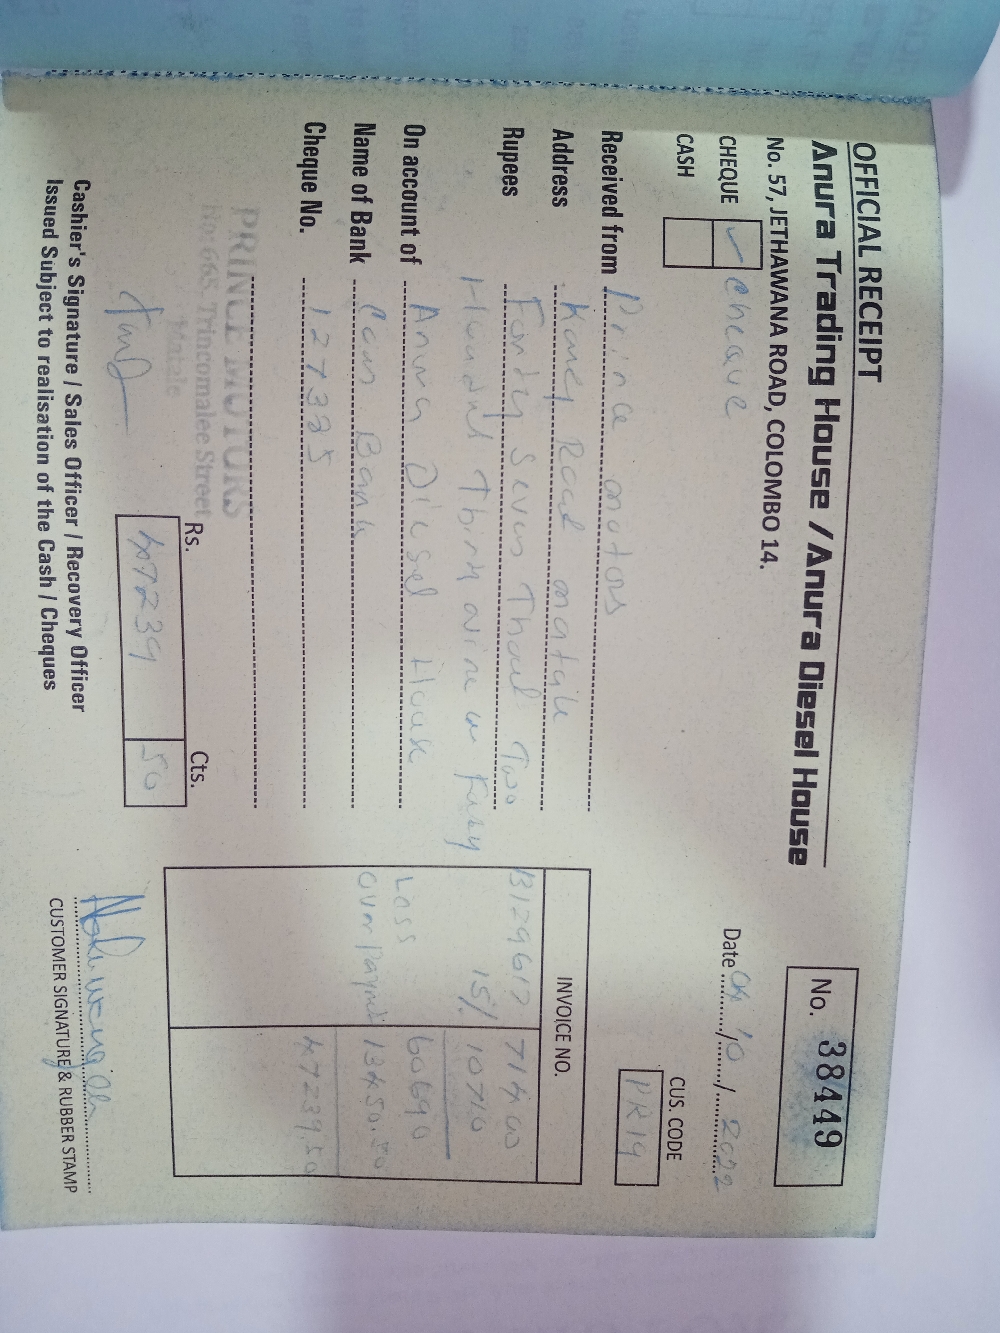 OFFICIAL RECEIPT
Anura Trading House / Anura Diesel House
No. 57, JETHAWANA ROAD, COLOMBO 14.
No. 38449
CHEQUE ✓ cheave
CASH
Date 04/10/2022
CUS. CODE
PR19
Received from Prince motors
Address Kandy Road matale
Rupees Forty Seven Thous Two
Hundred Thirty Nine
On account of Anura Diesel House
Name of Bank Com Bank
Cheque No. 127385
INVOICE NO.
B129617 71400
15% 10710
60690
Less
over payment 13450.50
47239.50
PRINCE MOTORS
No: 665, Trincomalee Street
Matale
Rs. Cts.
47239 50
Cashier's Signature / Sales Officer / Recovery Officer
Issued Subject to realisation of the Cash / Cheques
CUSTOMER SIGNATURE & RUBBER STAMP